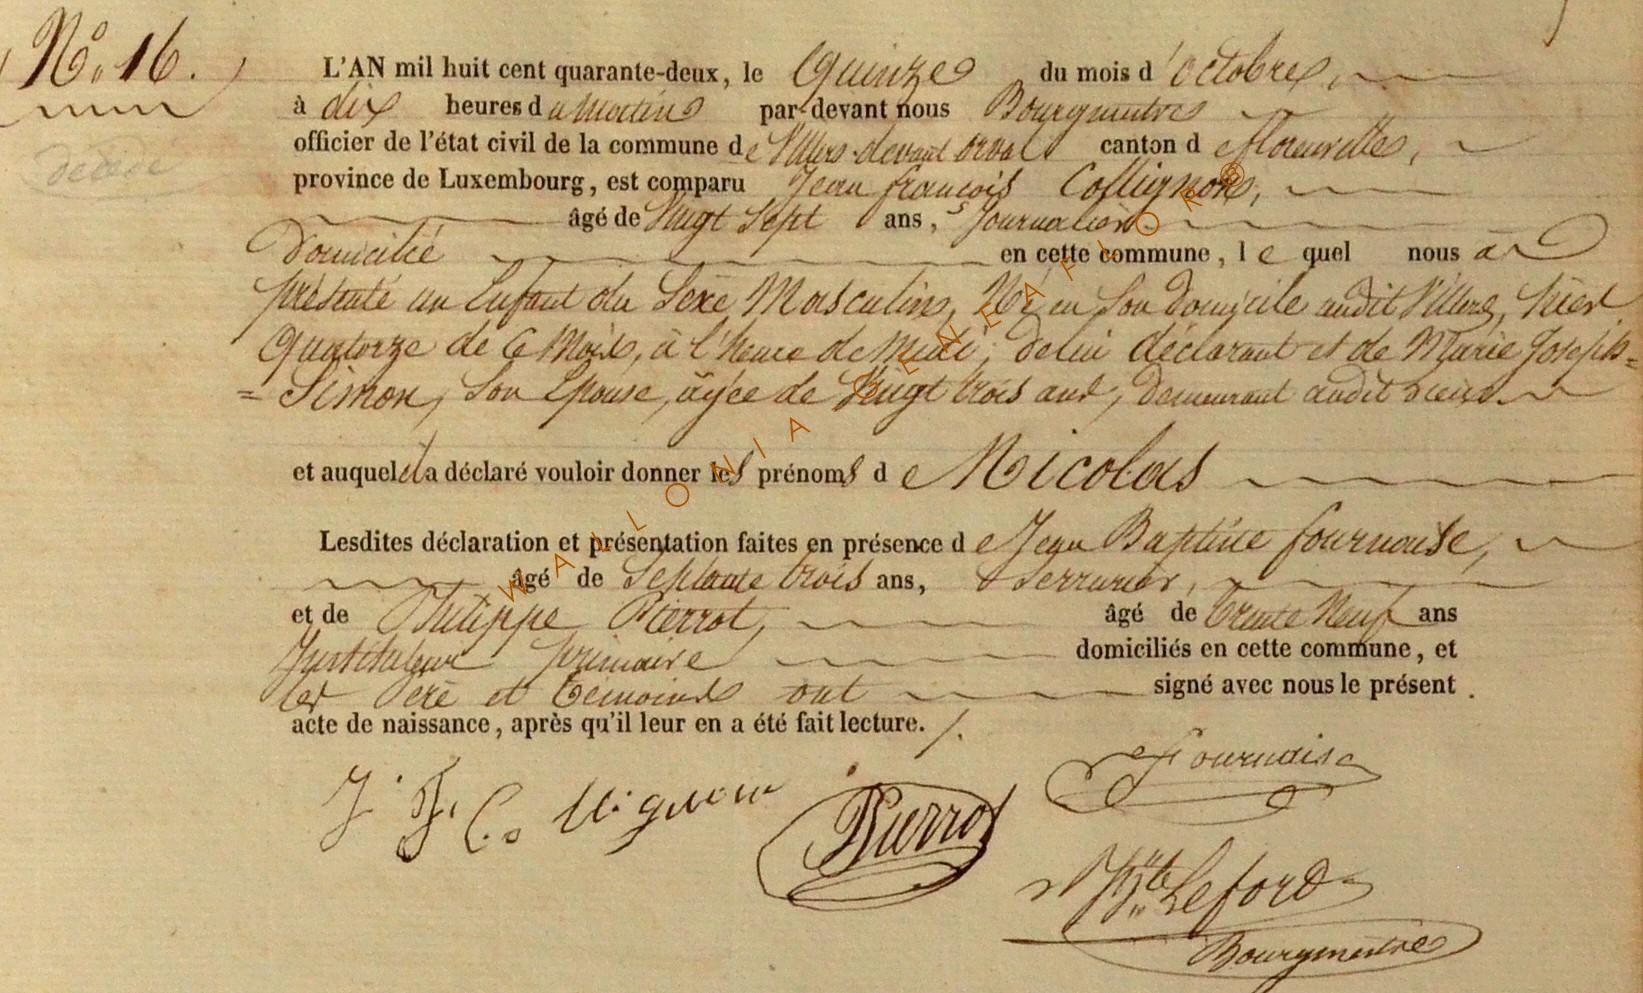 N.º 16.
décédé
L'AN mil huit cent quarante-deux, le Quinze du mois d'octobre,
à dix heures du Matin par-devant nous Bourgmestre
officier de l'état civil de la commune de Villers-devant orval canton de florenville,
province de Luxembourg, est comparu Jean françois Collignon,
âgé de Vingt Sept ans, Journalier
Domicilié en cette commune, le quel nous a
présenté un Enfant du Sexe Masculin, Né en Son domicile audit Villers, hier
Quatorze de ce Mois, à l'heure de Midi, de lui déclarant et de Marie Joseph=
=Simon, Son Epouse, âgée de Vingt trois ans, demeurant audit Lieu
et auquel il a déclaré vouloir donner les prénoms de Nicolas
Lesdites déclaration et présentation faites en présence de Jean Baptiste fournaise,
âgé de Septante trois ans, Serrurier,
et de Philippe Pierrot, âgé de trente Neuf ans
Instituteur primaire domiciliés en cette commune, et
les Père et témoins ont signé avec nous le présent.
acte de naissance, après qu'il leur en a été fait lecture./.
Fournaise
J. F. Collignon
Pierrot
Leford
Bourgmestre
WALLONIA GENEAFLOR®